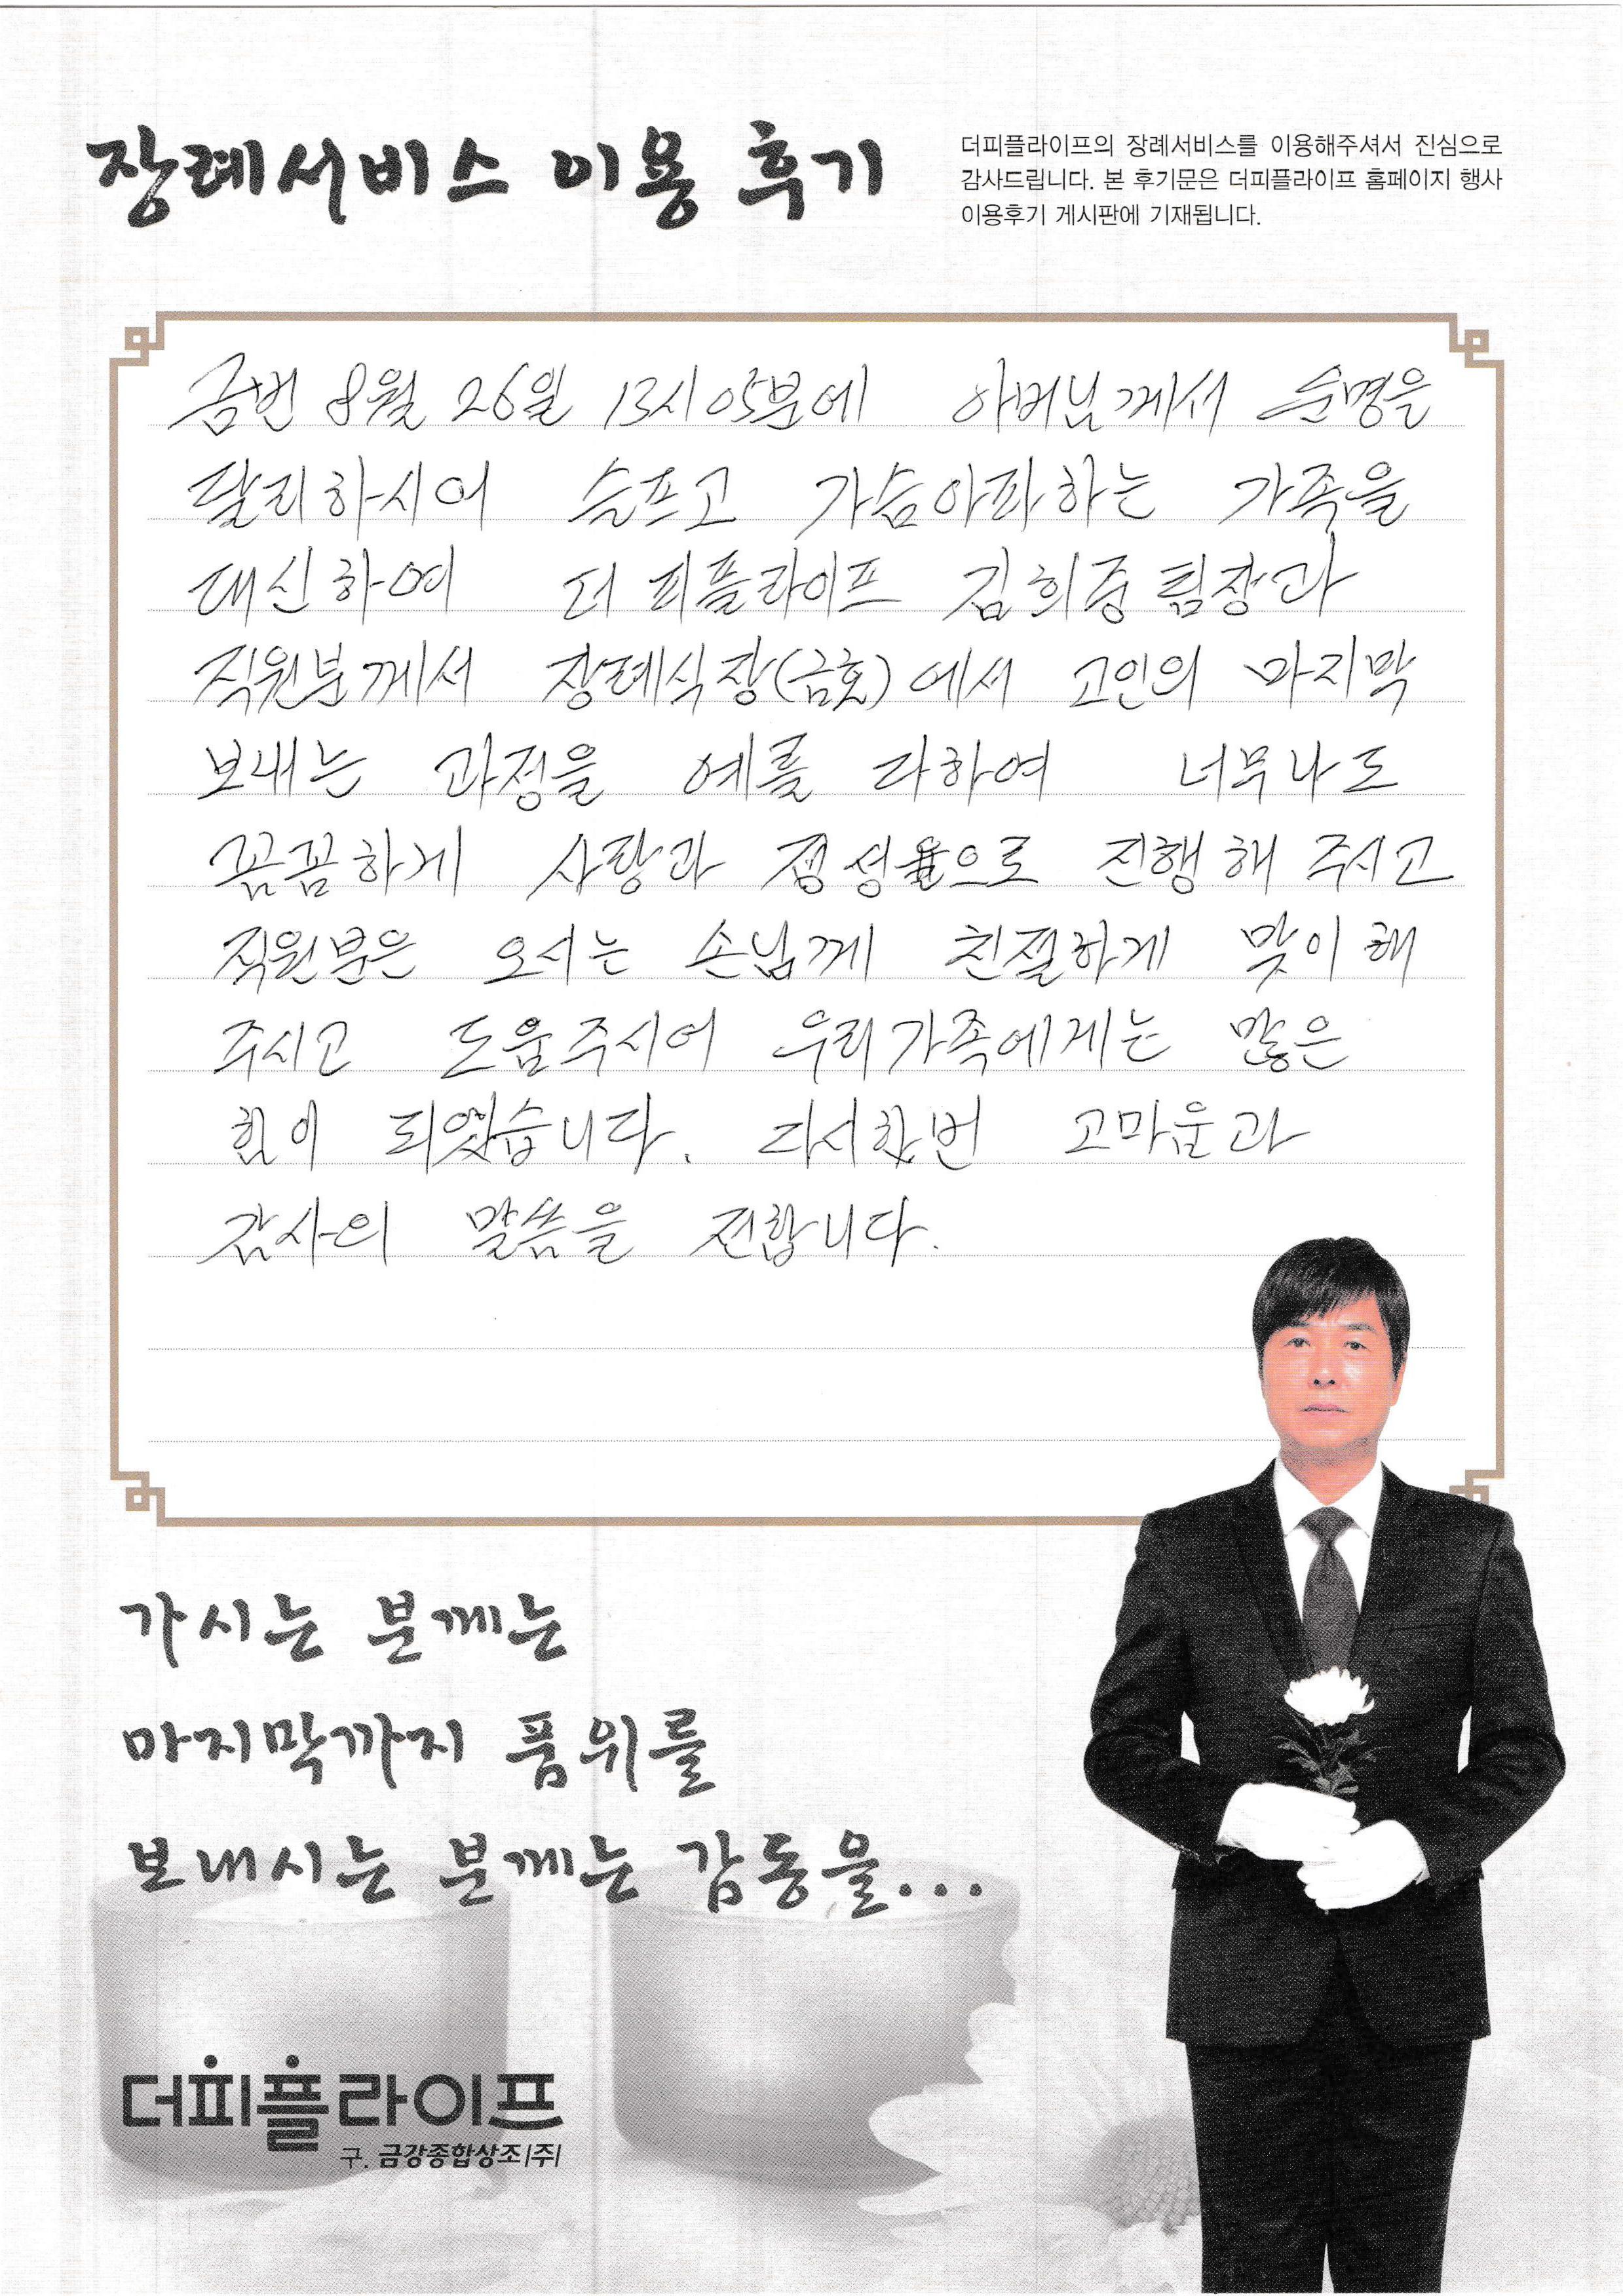 장례서비스 이용 후기
더피플라이프의 장례서비스를 이용해주셔서 진심으로
감사드립니다. 본 후기문은 더피플라이프 홈페이지 행사
이용후기 게시판에 기재됩니다.
금번 8월 26일 13시 05분에 아버님께서 순명은
달리하시어 슬프고 가슴아파하는 가족을
대신하여 더 피플라이프 김희중 팀장과
직원분께서 장례식장(금호)에서 고인의 마지막
보내는 과정을 예를 다하여 너무나도
꼼꼼하게 사랑과 정성으로 진행해 주시고
직원분은 오시는 손님께 친절하게 맞이해
주시고 도움주시어 우리가족에게는 많은
힘이 되었습니다. 다시한번 고마움과
감사의 말씀을 전합니다.
가시는 분께는
마지막까지 품위를
보내시는 분께는 감동을...
더피플라이프
구. 금강종합상조|주|